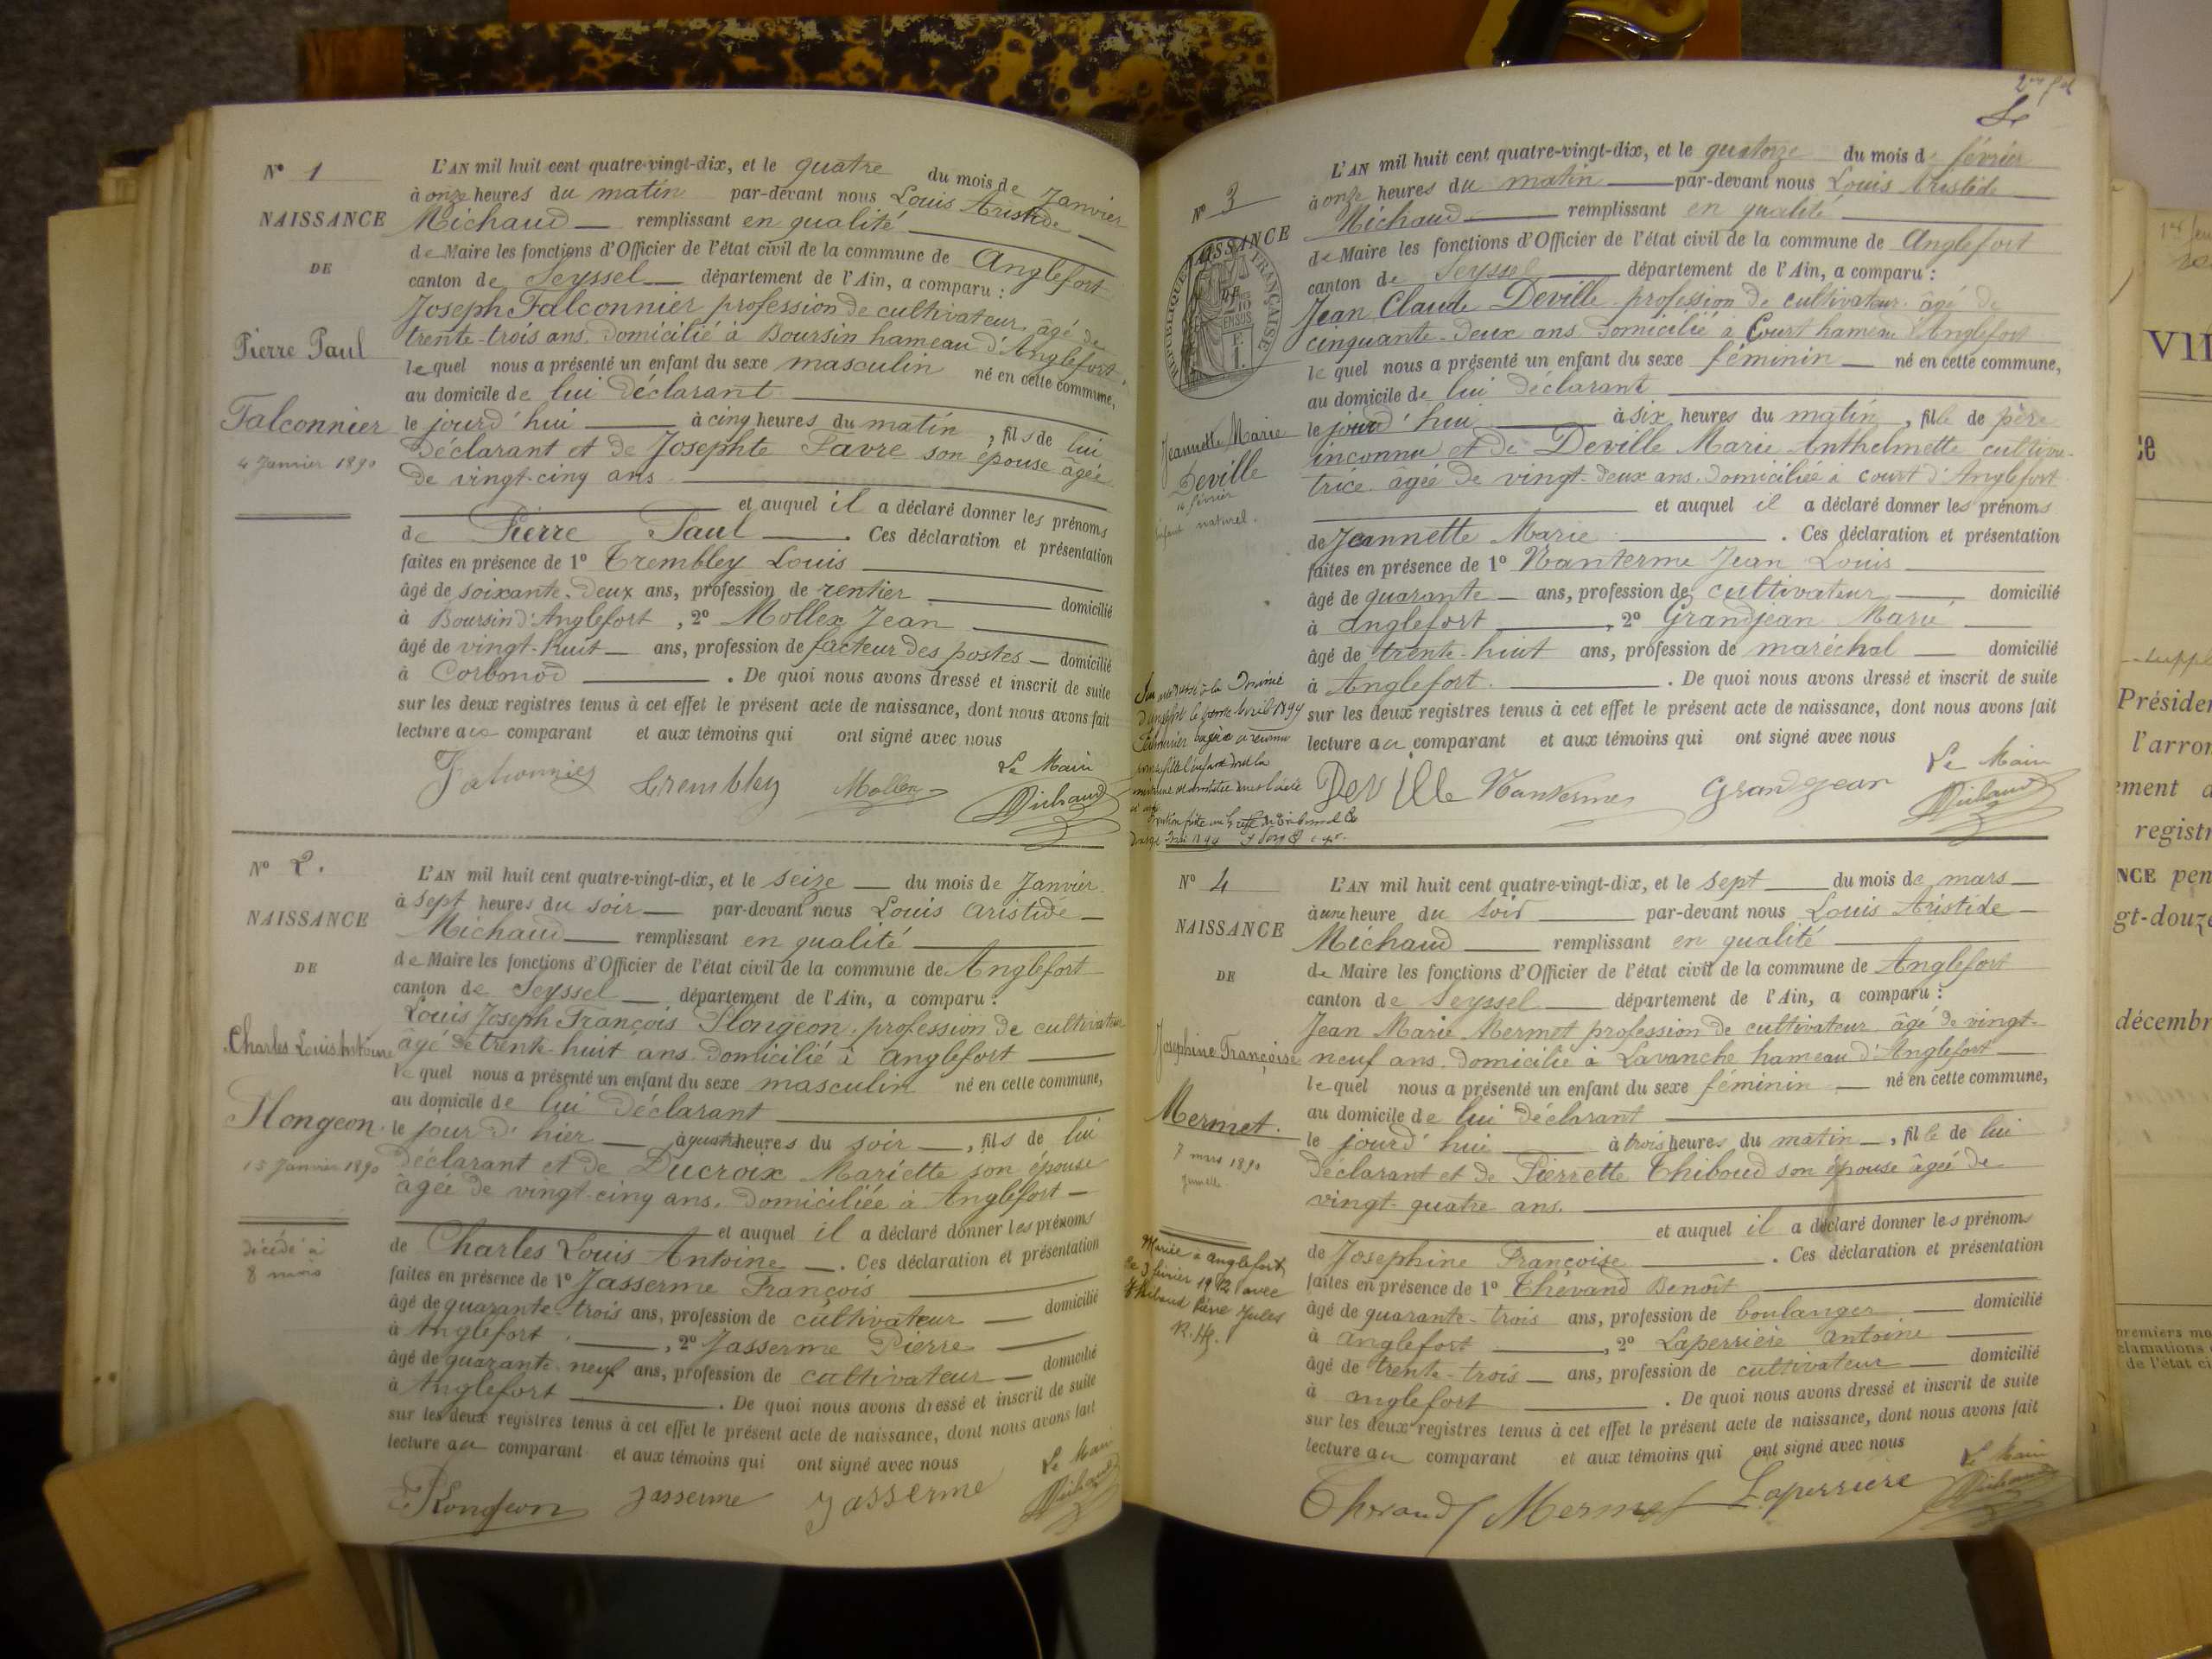 N° 1
NAISSANCE
DE
Pierre Paul
Falconnier
4 Janvier 1890
L'AN mil huit cent quatre-vingt-dix, et le quatre du mois de Janvier
à onze heures du matin par-devant nous Louis Aristide
Michaud remplissant en qualité
de Maire les fonctions d'Officier de l'état civil de la commune de Anglefort
canton de Seyssel département de l'Ain, a comparu :
Joseph Falconnier profession de cultivateur, âgé de
trente-trois ans. domicilié à Boursin hameau d'Anglefort
lequel nous a présenté un enfant du sexe masculin né en cette commune,
au domicile de lui déclarant
le jourd'hui à cinq heures du matin, fils de lui
déclarant et de Josephte Favre son épouse âgée
de vingt-cinq ans
et auquel il a déclaré donner les prénoms
de Pierre Paul. Ces déclaration et présentation
faites en présence de 1° Trembley Louis
âgé de soixante-deux ans, profession de rentier domicilié
à Boursin d'Anglefort, 2° Mollex Jean
âgé de vingt-huit ans, profession de facteur des postes domicilié
à Corbonod. De quoi nous avons dressé et inscrit de suite
sur les deux registres tenus à cet effet le présent acte de naissance, dont nous avons fait
lecture au comparant et aux témoins qui ont signé avec nous
Falconnier Trembley Mollex Le Maire Michaud
N° 2.
NAISSANCE
DE
Charles Louis Antoine
Plongeon
15 Janvier 1890
décédé à
8 mois
L'AN mil huit cent quatre-vingt-dix, et le seize du mois de Janvier
à sept heures du soir par-devant nous Louis Aristide
Michaud remplissant en qualité
de Maire les fonctions d'Officier de l'état civil de la commune de Anglefort
canton de Seyssel département de l'Ain, a comparu :
Louis Joseph François Plongeon, profession de cultivateur
âgé de trente-huit ans domicilié à Anglefort
lequel nous a présenté un enfant du sexe masculin né en cette commune,
au domicile de lui déclarant
le jour d'hier à quatre heures du soir, fils de lui
déclarant et de Ducroix Mariette son épouse
âgée de vingt-cinq ans. domiciliée à Anglefort
et auquel il a déclaré donner les prénoms
de Charles Louis Antoine. Ces déclaration et présentation
faites en présence de 1° Jasserme François
âgé de quarante-trois ans, profession de cultivateur domicilié
à Anglefort, 2° Jasserme Pierre
âgé de quarante-neuf ans, profession de cultivateur domicilié
à Anglefort. De quoi nous avons dressé et inscrit de suite
sur les deux registres tenus à cet effet le présent acte de naissance, dont nous avons fait
lecture au comparant et aux témoins qui ont signé avec nous
Plongeon Jasserme Jasserme Le Maire Michaud
N° 3
NAISSANCE
DE
RÉPUBLIQUE FRANÇAISE
Jeannette Marie
Deville
14 février
enfant naturel.
L'AN mil huit cent quatre-vingt-dix, et le quatorze du mois de février
à onze heures du matin par-devant nous Louis Aristide
Michaud remplissant en qualité
de Maire les fonctions d'Officier de l'état civil de la commune de Anglefort
canton de Seyssel département de l'Ain, a comparu :
Jean Claude Deville profession de cultivateur âgé de
cinquante-deux ans domicilié à Court hameau d'Anglefort
lequel nous a présenté un enfant du sexe féminin né en cette commune,
au domicile de lui déclarant
le jourd'hui à six heures du matin, fille de père
inconnu et de Deville Marie Anthelmette cultiva-
trice âgée de vingt-deux ans. domiciliée à Court d'Anglefort
et auquel il a déclaré donner les prénoms
de Jeannette Marie. Ces déclaration et présentation
faites en présence de 1° Nanterme Jean Louis
âgé de quarante ans, profession de cultivateur domicilié
à Anglefort, 2° Grandjean Marie
âgé de trente-huit ans, profession de maréchal domicilié
à Anglefort. De quoi nous avons dressé et inscrit de suite
sur les deux registres tenus à cet effet le présent acte de naissance, dont nous avons fait
lecture au comparant et aux témoins qui ont signé avec nous
Deville Nanterme Grandjean Le Maire Michaud
N° 4
NAISSANCE
DE
Josephine Françoise
Mermet.
7 mars 1890
jumelle
Mariée à Anglefort
le 3 février 1912 avec
Thiboud Pierre Jules
L'AN mil huit cent quatre-vingt-dix, et le sept du mois de mars
à une heure du soir par-devant nous Louis Aristide
Michaud remplissant en qualité
de Maire les fonctions d'Officier de l'état civil de la commune de Anglefort
canton de Seyssel département de l'Ain, a comparu :
Jean Marie Mermet profession de cultivateur âgé de vingt-
neuf ans. domicilié à Lavanche hameau d'Anglefort
lequel nous a présenté un enfant du sexe féminin né en cette commune,
au domicile de lui déclarant
le jourd'hui à trois heures du matin, fille de lui
déclarant et de Pierrette Thiboud son épouse âgée de
vingt-quatre ans.
et auquel il a déclaré donner les prénoms
de Josephine Françoise. Ces déclaration et présentation
faites en présence de 1° Thévand Benoît
âgé de quarante-trois ans, profession de boulanger domicilié
à Anglefort, 2° Laperrière Antoine
âgé de trente-trois ans, profession de cultivateur domicilié
à Anglefort. De quoi nous avons dressé et inscrit de suite
sur les deux registres tenus à cet effet le présent acte de naissance, dont nous avons fait
lecture au comparant et aux témoins qui ont signé avec nous
Thévand Mermet Laperriere Le Maire Michaud
VII
Présiden
l'arron
registr
NCE pen
gt-douze
décembr